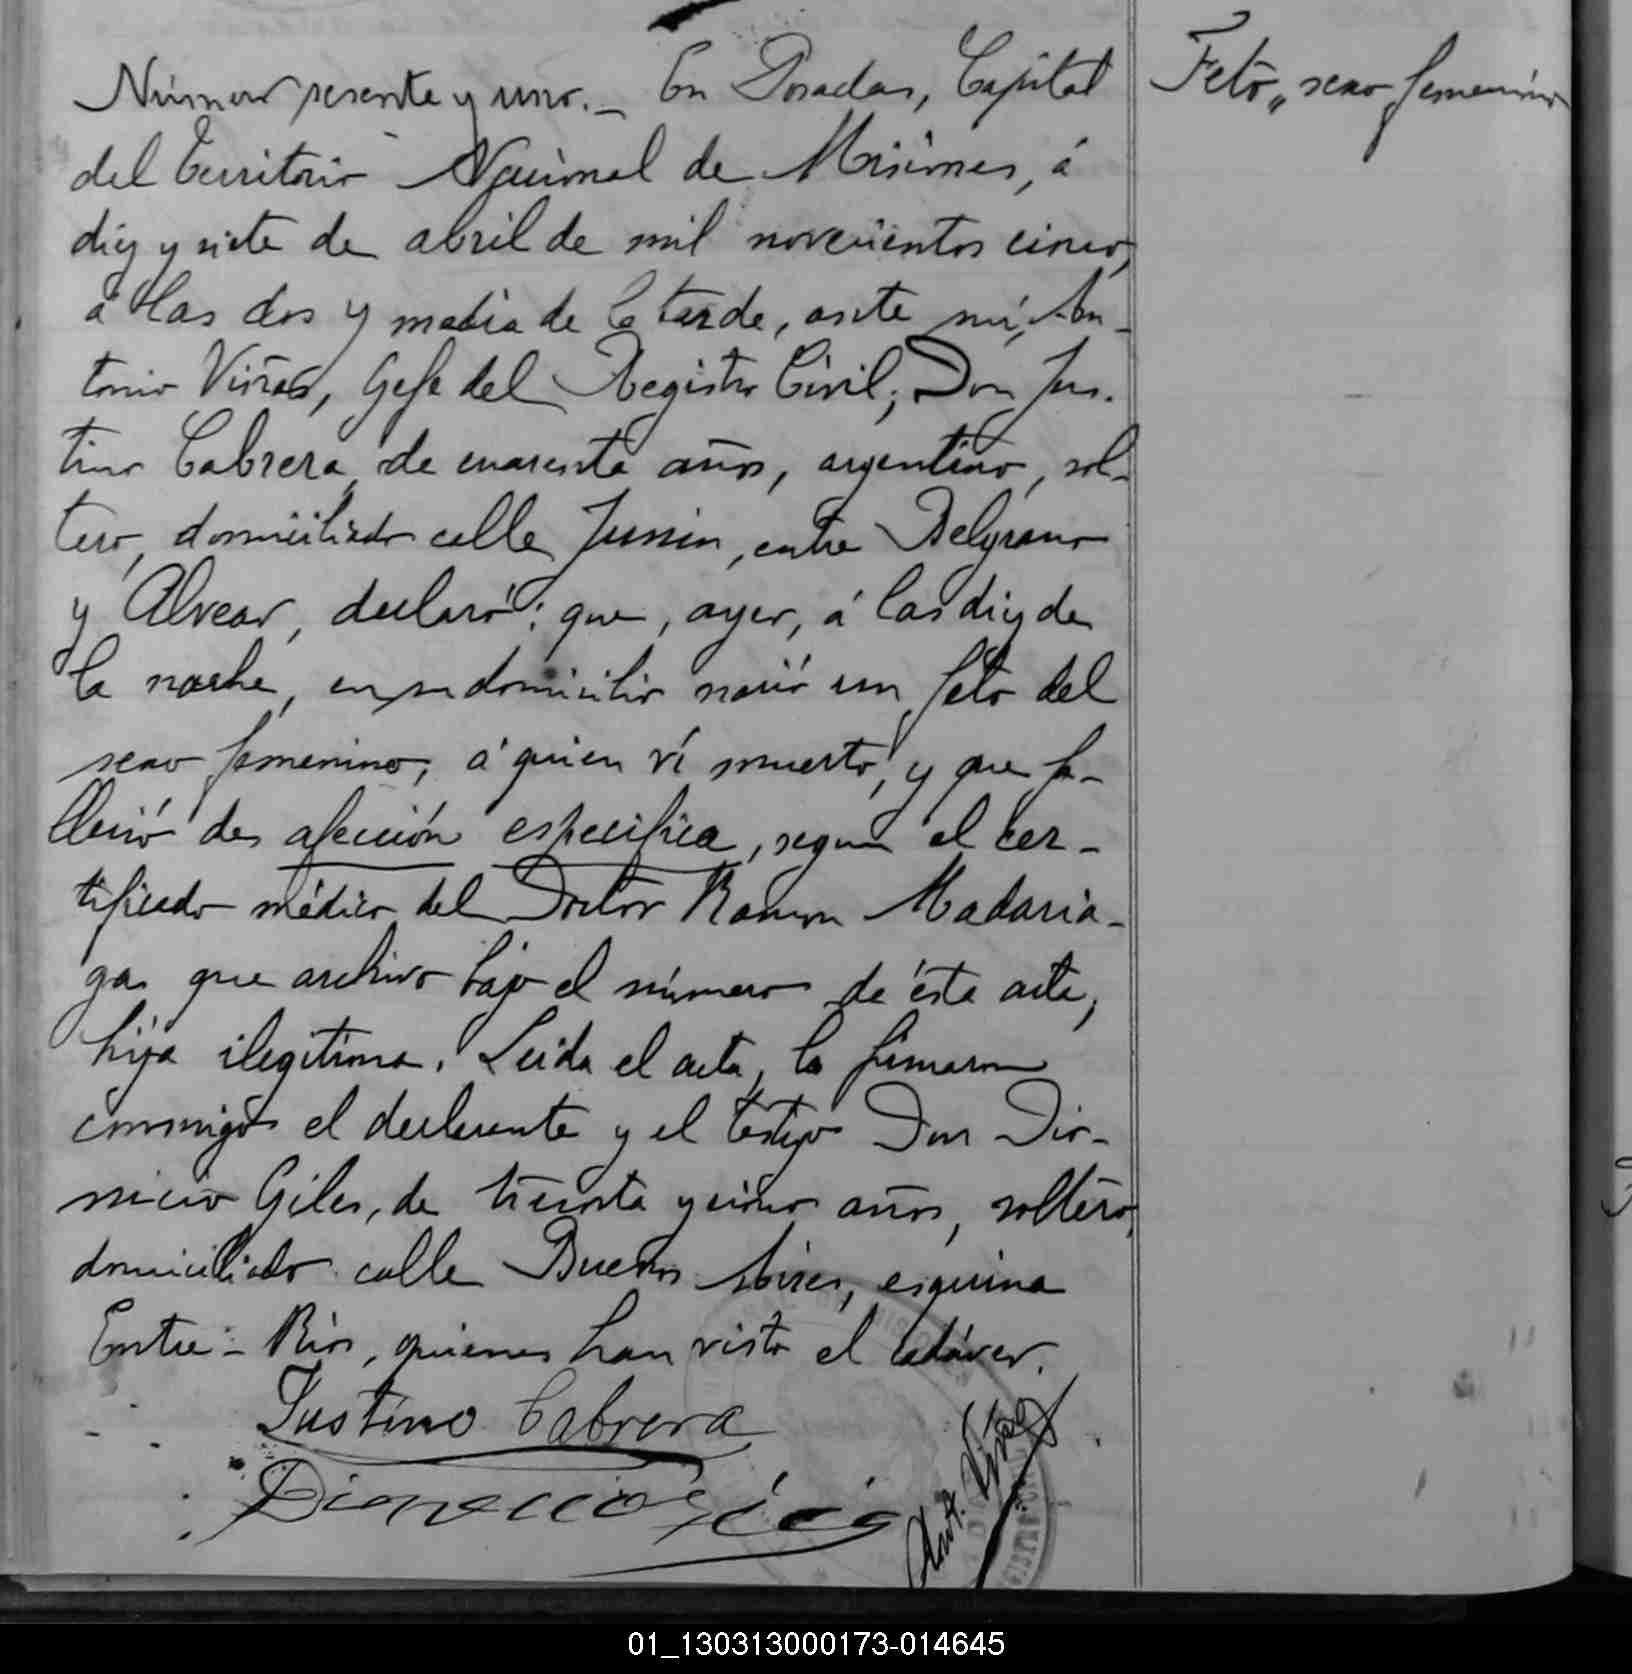 Número sesenta y uno._ En Posadas, Capital
del Territorio Nacional de Misiones, á
diez y siete de abril de mil novecientos cinco,
á las dos y media de la tarde, ante mí, An-
tonio Viñas, Gefe del Registro Civil; Don Jus-
tino Cabrera, de cuarenta años, argentino, sol-
tero, domiciliado calle Junin, entre Belgrano
y Alvear, declaró: que, ayer, á las diez de
la noche, en su domicilio nació un feto del
sexo femenino, á quien ví muerto, y que fa-
lleció de afección especifica, segun el cer-
tificado médico del Doctor Ramon Madaria-
ga que archivo bajo el número de ésta acta,
hija ilegitima. Leida el acta, la firmaron
conmigo el declarante y el testigo Don Dio-
nicio Giles, de treinta y cinco años, soltero,
domiciliado calle Buenos Aires, esquina
Entre-Rios, quienes han visto el cadáver.
Justino Cabrera
Dionicio Giles
Ant. Viñas
Feto,, sexo femenino
01_130313000173-014645